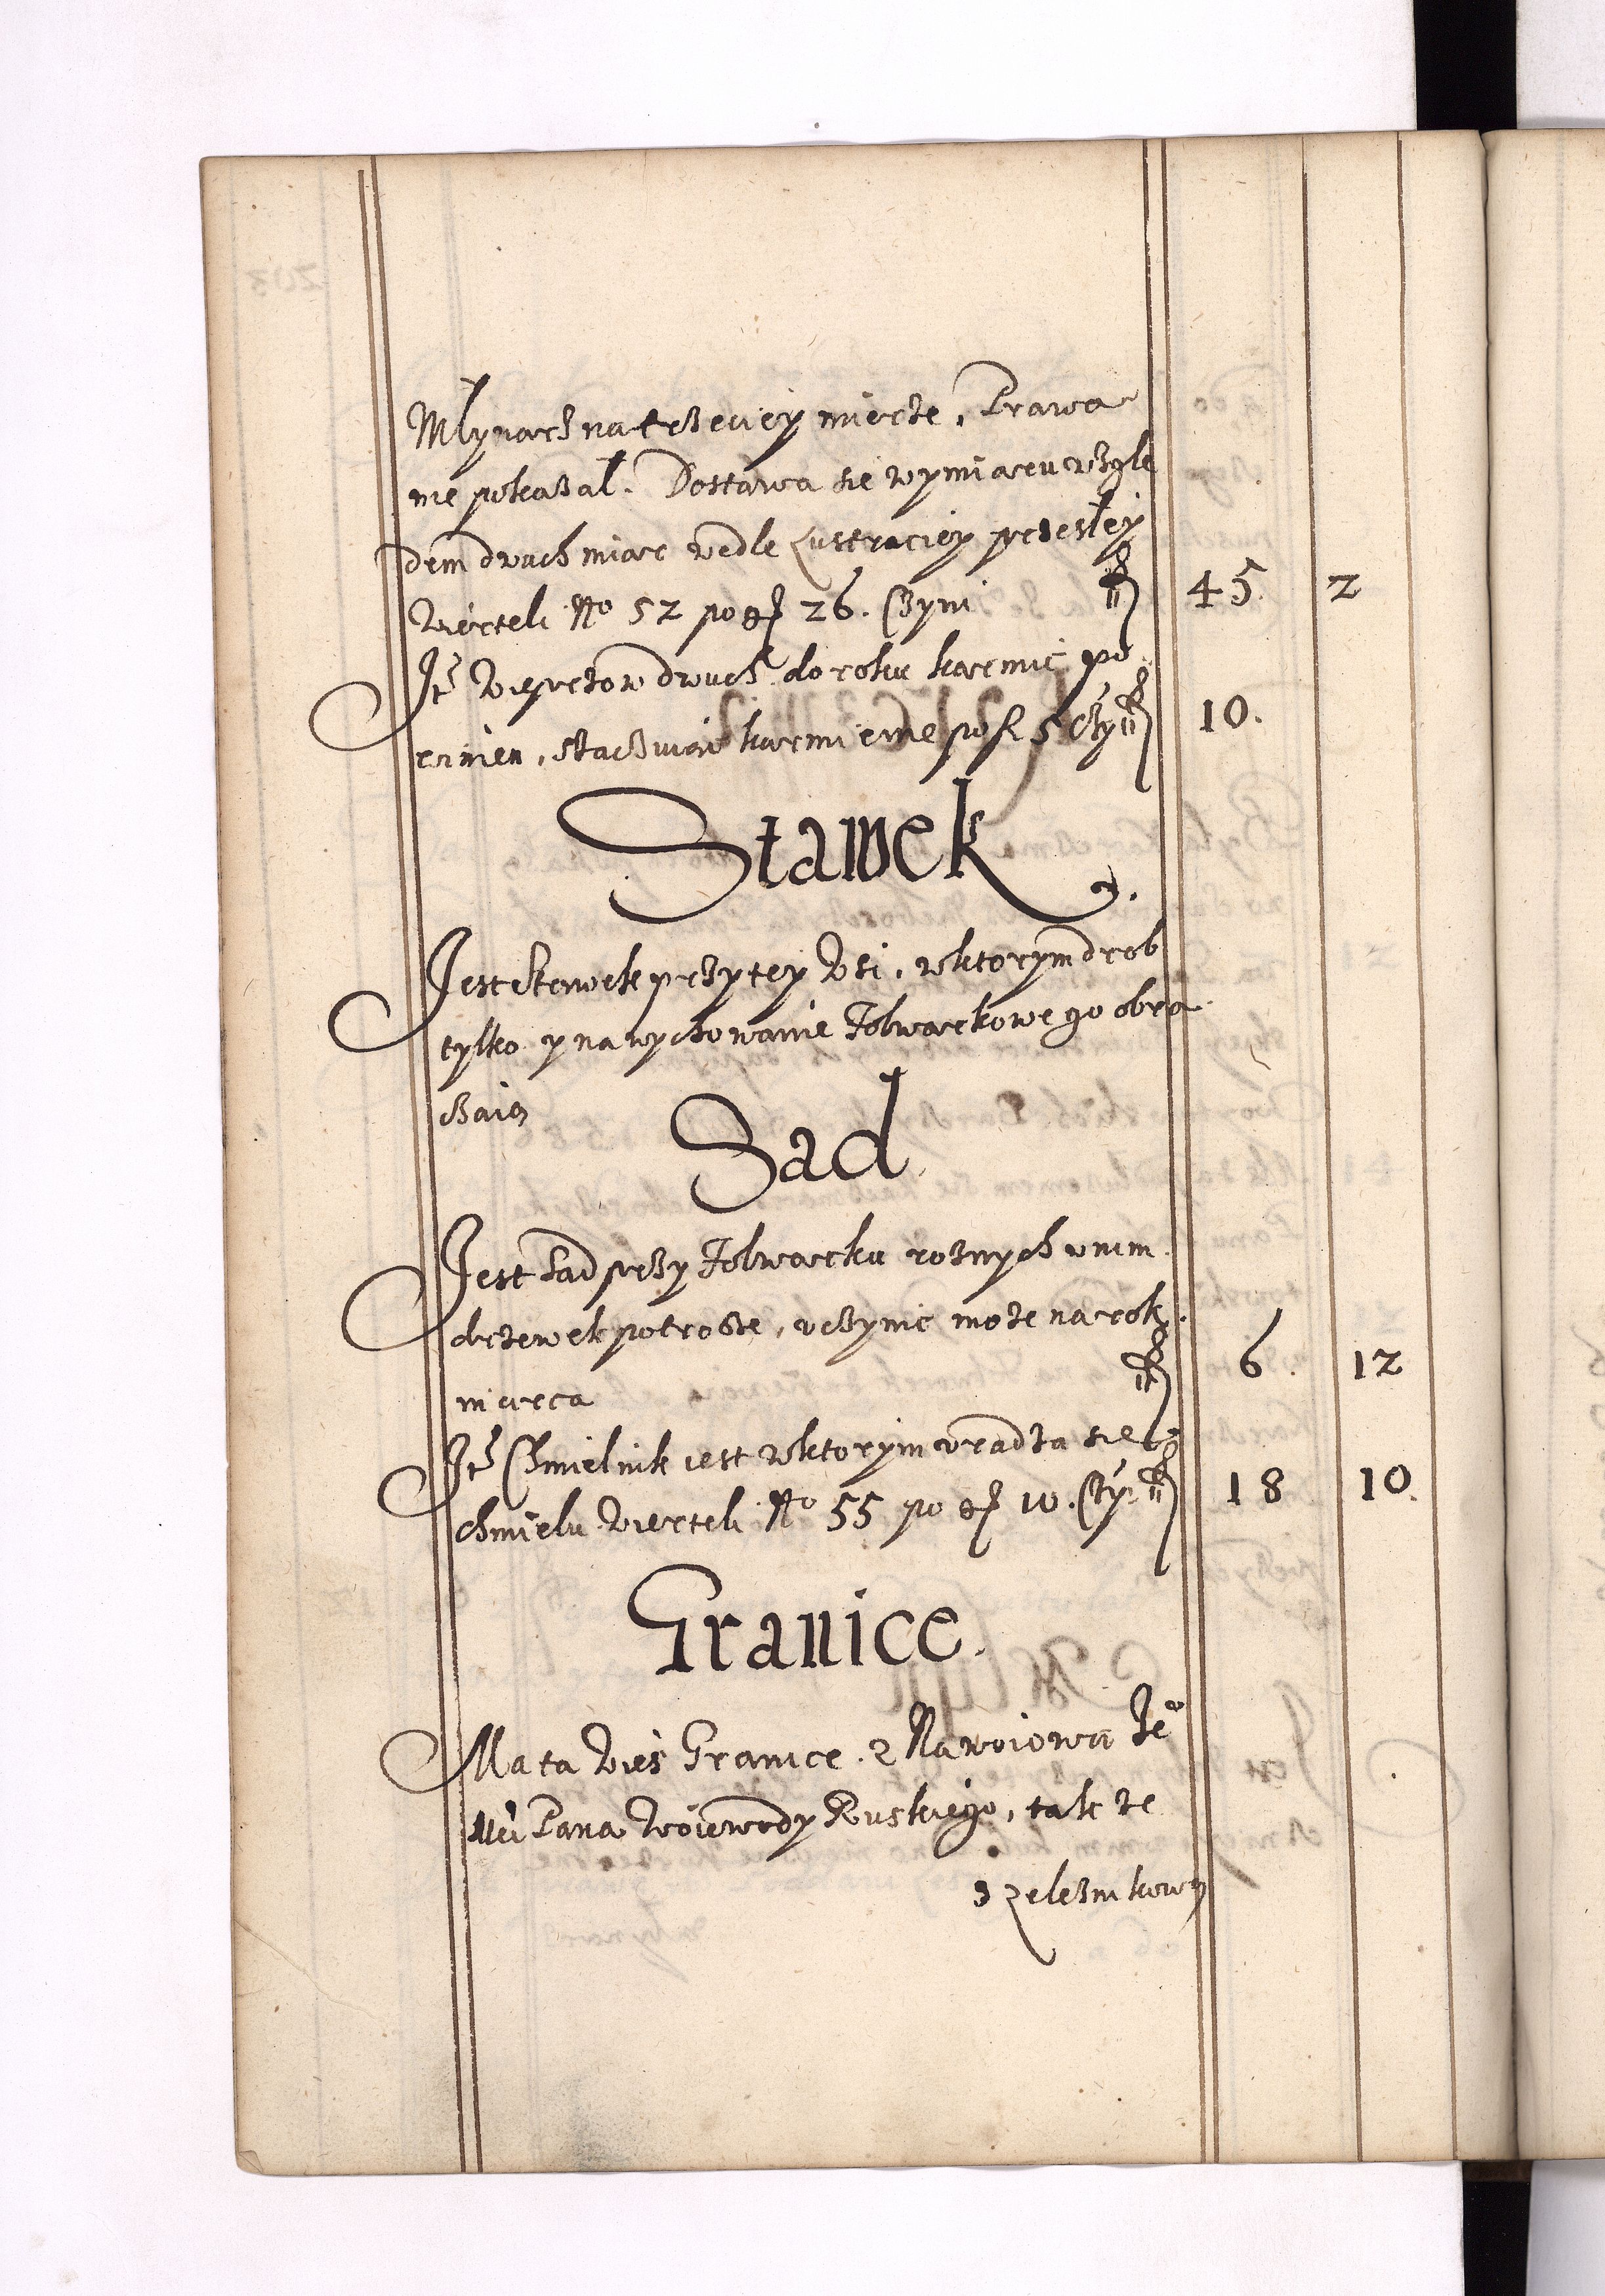 Młynarz na trzeciey mierze, Prawa
nie pokazał. Dostawa sie wymiaru wzglę
dem dwuch miar wedle Lustraciey przesłey
Wierteli No 52 po gr 26. Czyni fl 45. 2
Itẽ Wieprzow dwuch do roku karmic po
winien, szacuiąc karmienie po fl 5 Czy fl 10.
Stawek
Jest stawek przy tey Wsi, w ktorym drob
tylko y na wychowanie Folwarkowego obra
czaią
Sad
Jest Sad przy Folwarku roznych w nim
drzewek potrosze, uczynic moze na rok
marca fl 6. 12
Itẽ Chmielnik iest w ktorym uradza sie
chmielu Wierteli No 55 po gr 10. Czy. fl 18 10.
Granice.
Ma ta Wieś Granice z Nawoiową Je°
Mci Pana Woiewody Ruskiego, takze
z Zelesnikową